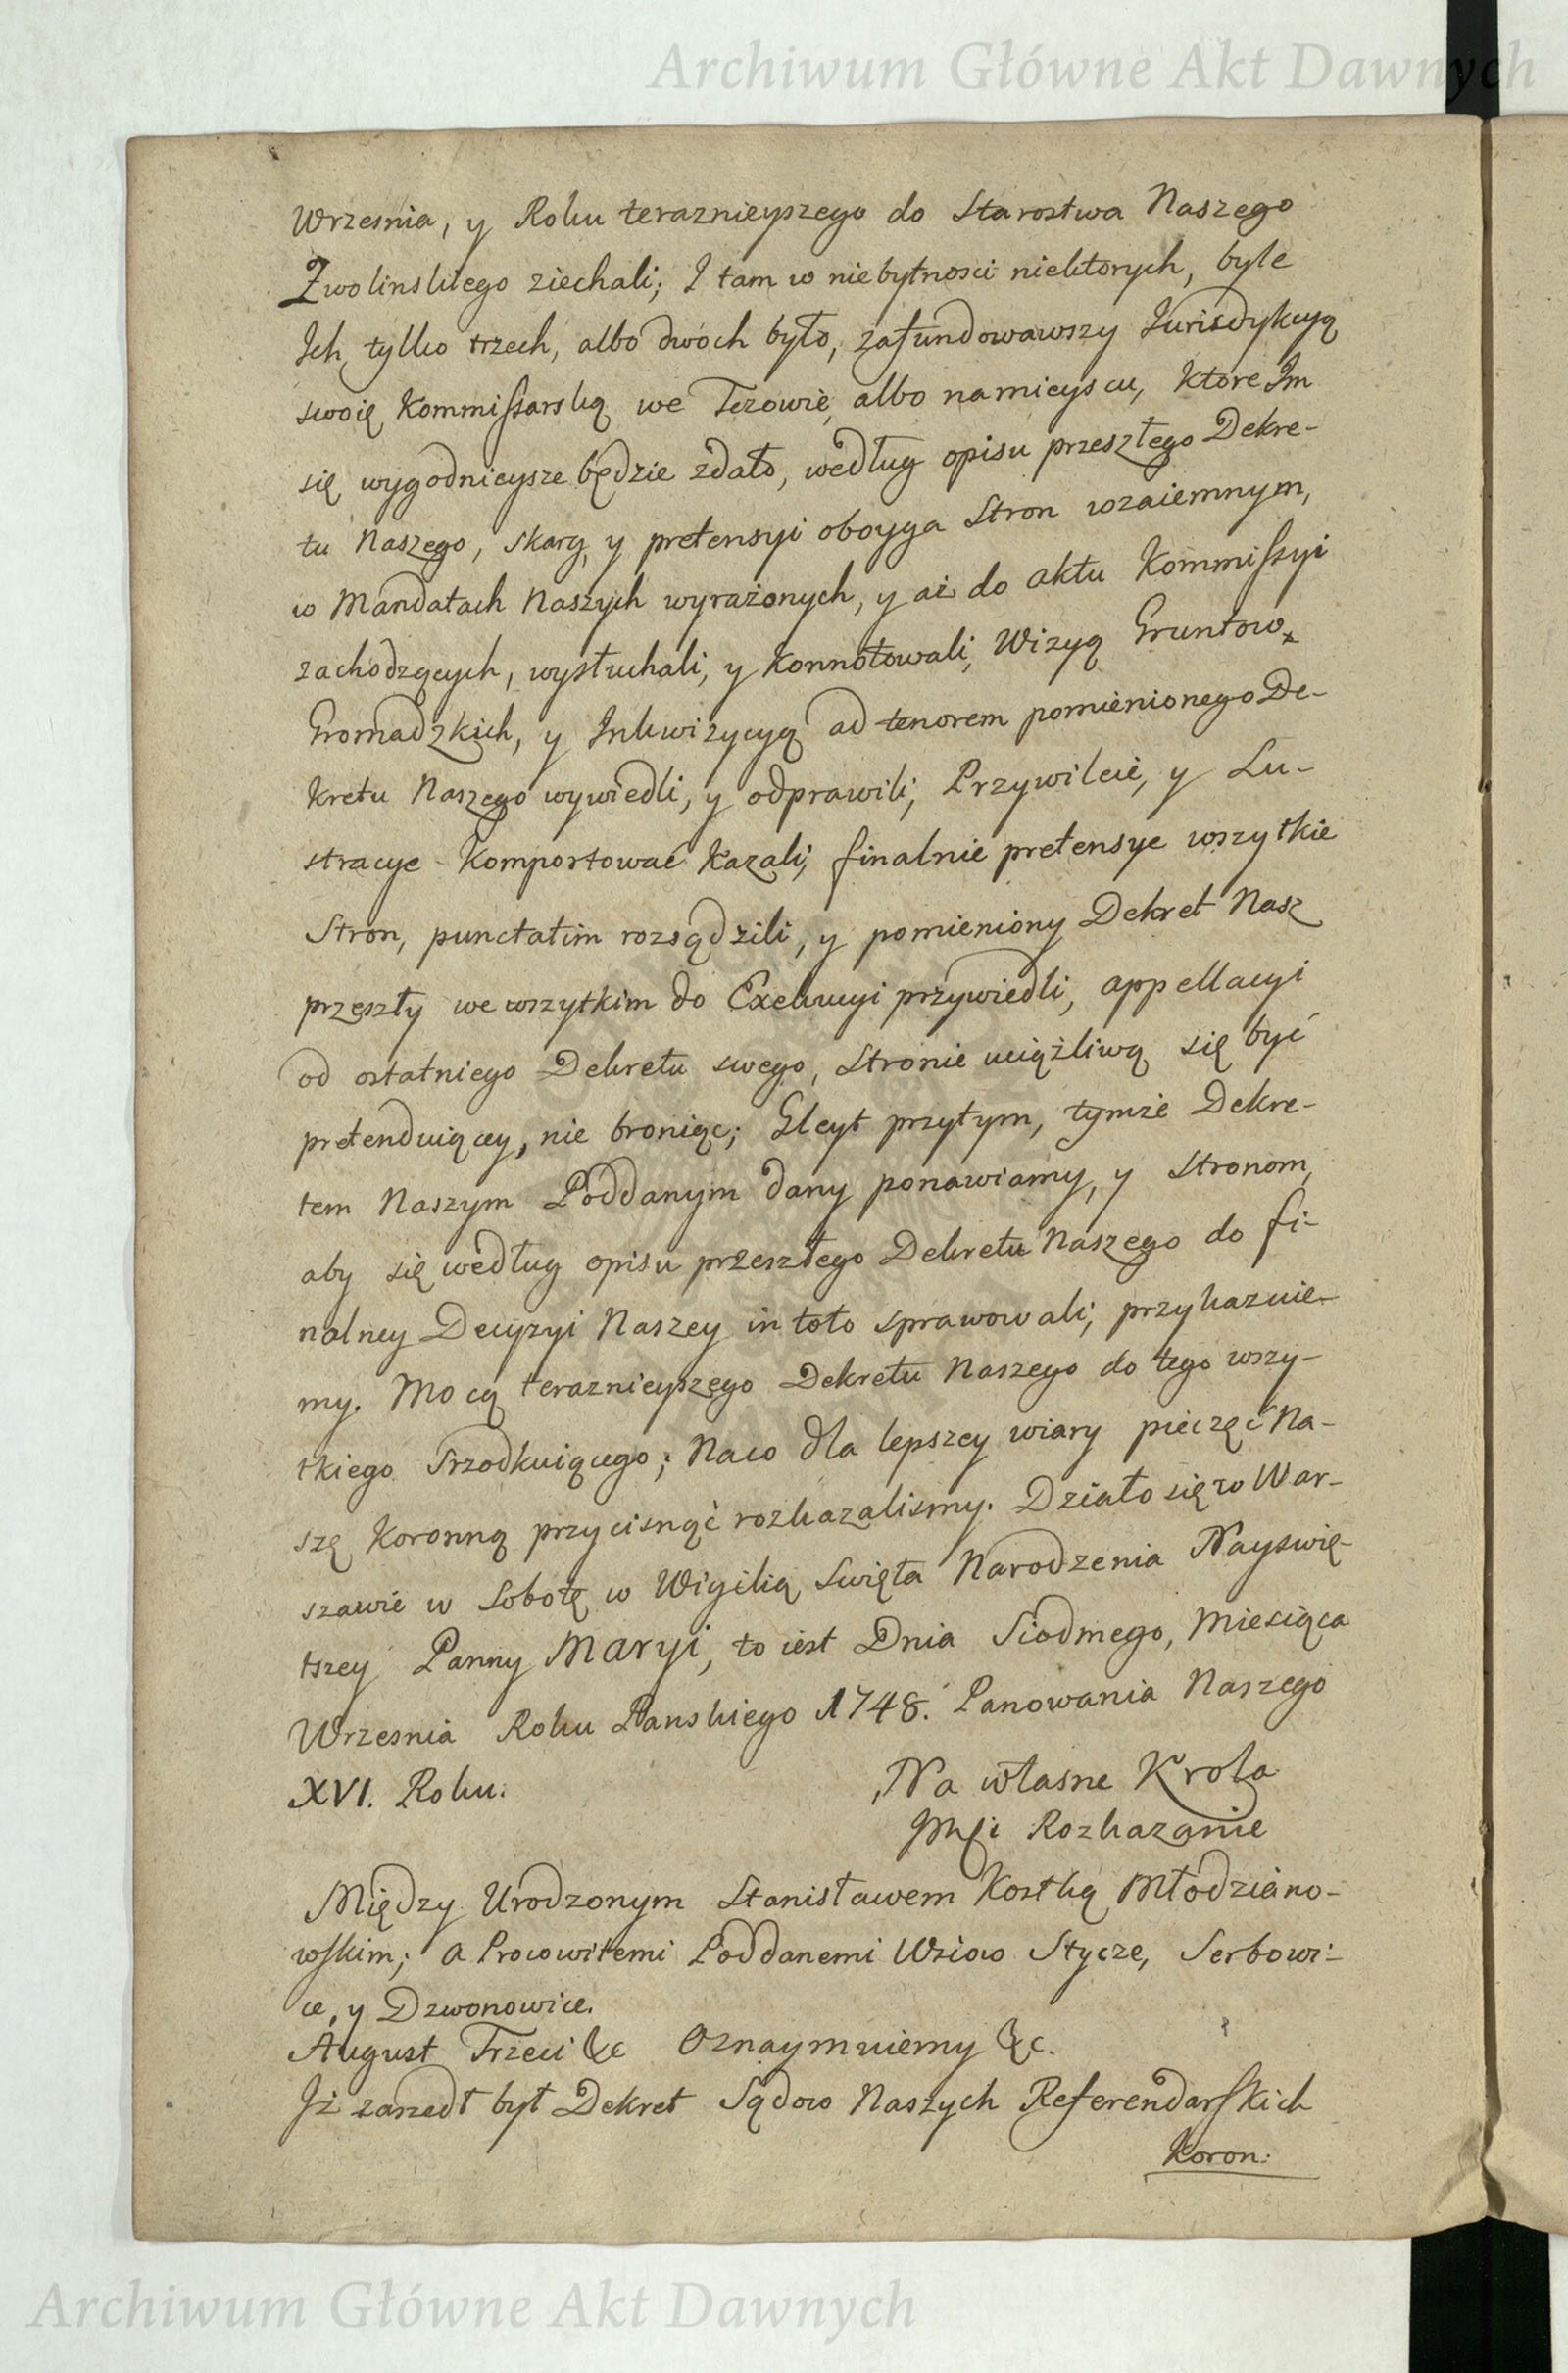 Archiwum Główne Akt Dawnych
Wrzesnia, y Roku teraznieyszego do Starostwa Naszego
Zwolinskiego ziechali; I tam w niebytnosci niektorych, byle
Ich tylko trzech, albo dwoch było, zafundowawszy Iurisdykcyą
swoię Kommissarską we Tczowie, albo na mieyscu, ktore Im
się wygodnieysze będzie zdało, według opisu przeszłego Dekre-
tu Naszego, skarg, y pretensyi oboyga Stron wzaiemnym,
w Mandatach Naszych wyrażonych, y aż do aktu Kommissyi
zachodzących, wysłuchali, y Konnotowali, Wizyą Gruntow
Gromadzkich, y Inkwizycyą ad tenorem pomienionego De-
kretu Naszego wywiedli, y odprawili, Przywileie, y Lu-
stracye Komportować Kazali, finalnie pretensye wszytkie
Stron, punctatim rozsądzili, y pomieniony Dekret Nasz
przeszły we wszytkim do Exekucyi przywiedli, appellacyi
od ostatniego Dekretu swego, Stronie uciążliwą się być
pretenduiącey, nie broniąc; Gleyt przytym, tymże Dekre-
tem Naszym Poddanym dany ponawiamy, y Stronom,
aby się według opisu przeszłego Dekretu Naszego do fi-
nalney Decyzyi Naszey in toto sprawowali, przykazuie-
my. Mocą teraznieyszego Dekretu Naszego do tego wszy-
tkiego Srzodkuiącego; Naco dla lepszey wiary pieczęć Na-
szę Koronną przycisnąć rozkazalismy. Działo się w War-
szawie w Sobotę w Wigilią Swięta Narodzenia Nayswię-
tszey Panny Maryi, to iest Dnia Siodmego, Miesiąca
Wrzesnia Roku Panskiego 1748. Panowania Naszego
XVI. Roku.
Na własne Krola
Jmsci Rozkazanie
Między Urodzonym Stanisławem Kostką Młodziano-
wskim; a Pracowitemi Poddanemi Wsiow Stycze, Serbowi-
ce, y Dzwonowice.
August Trzeci &c Oznaymuiemy &c.
Iż zaszedł był Dekret Sądow Naszych Referendarskich
Koron:
Archiwum Główne Akt Dawnych